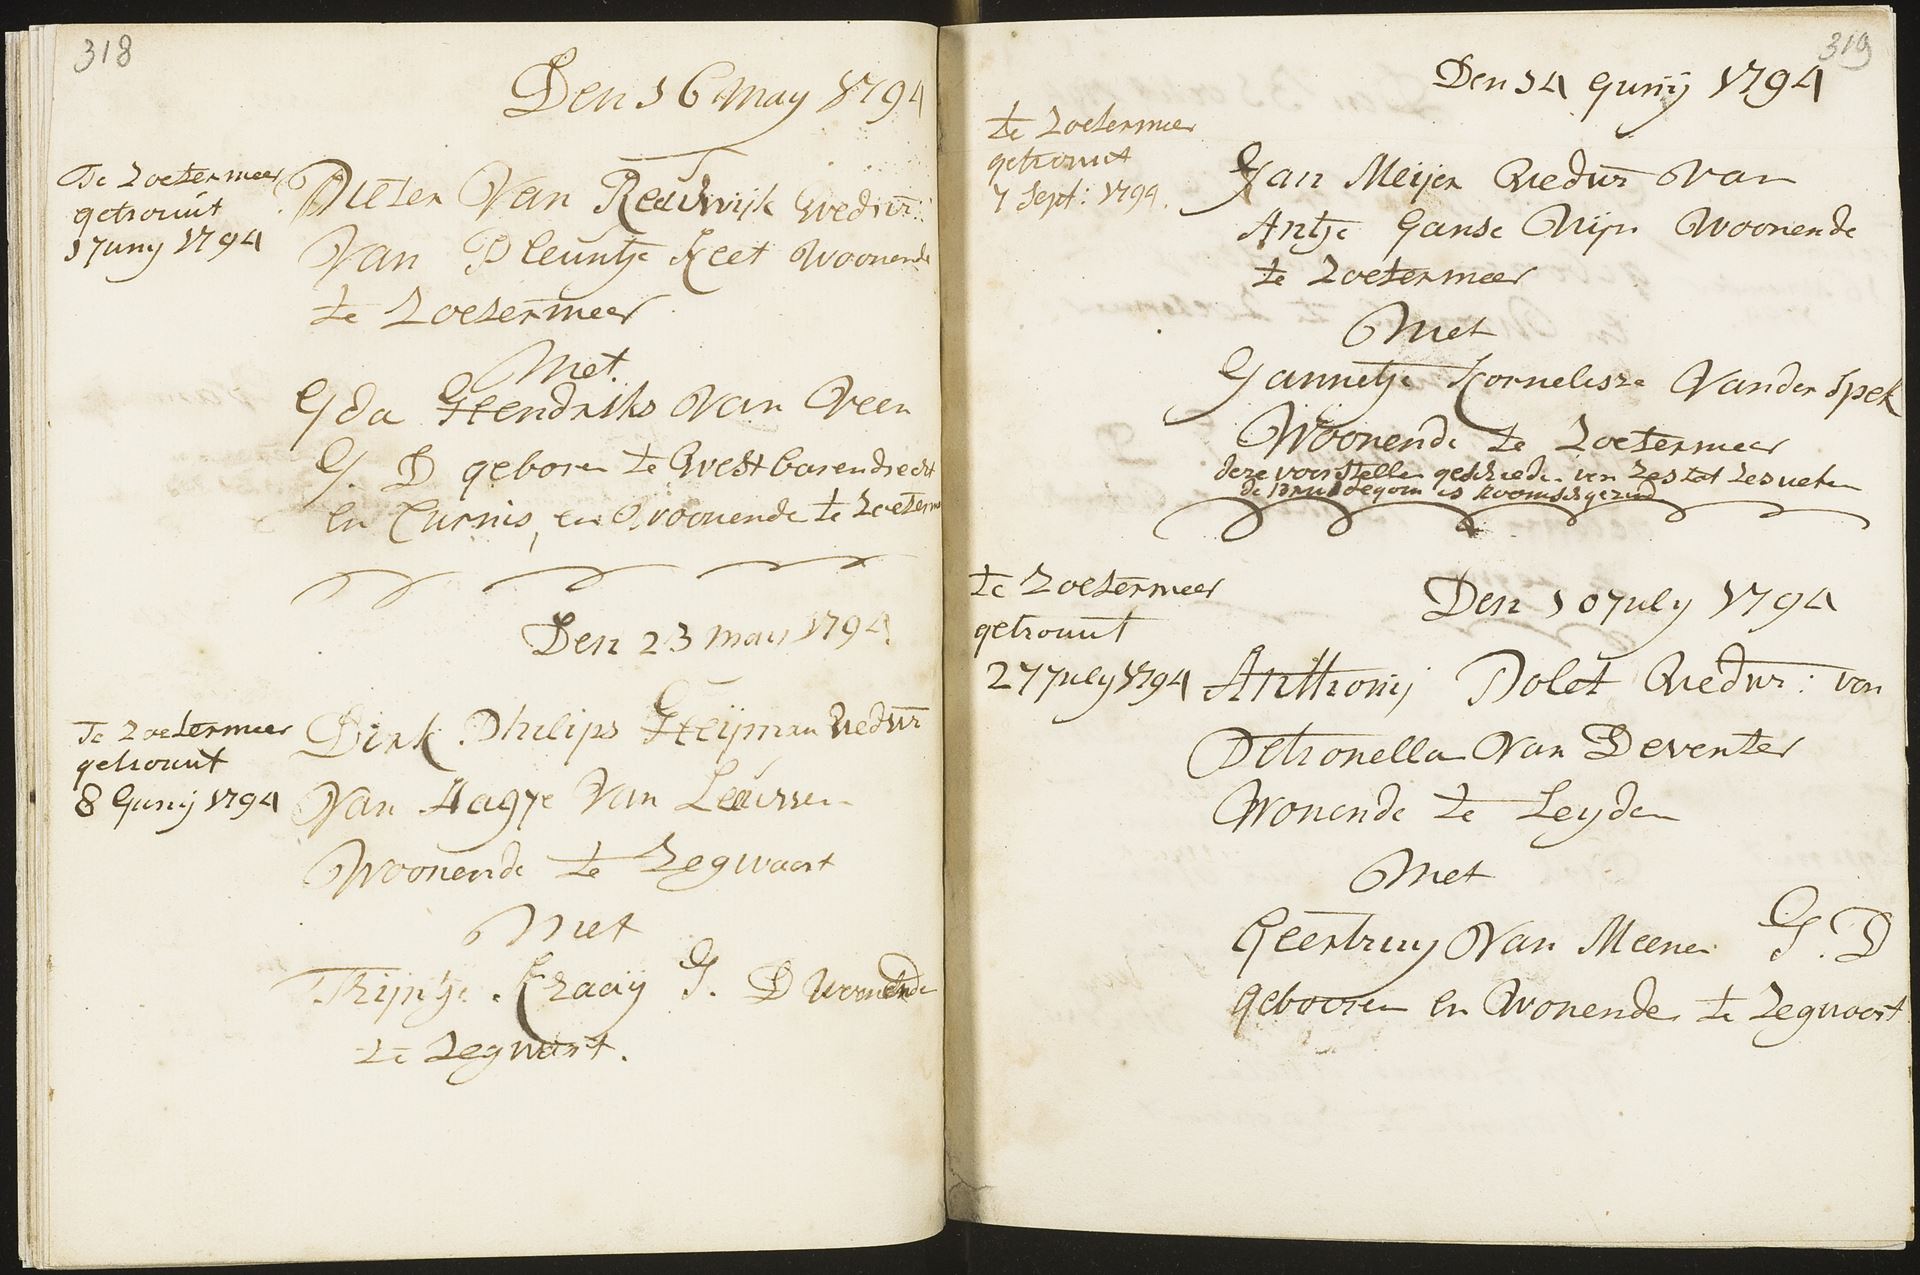 318
Den 16 May 1794
Te Zoetermeer
getrouwt
1 Juny 1794
Pieter Van Reeuwijk Wedwr:
Van Pleuntje Keet Woonende
te Zoetermeer
Met
Ida Hendriks Van Veen
J. D geboren te West barendrecht
en Carnis, en Woonende te Zoeterm
Den 23 May 1794
Te Zoetermeer
getrouwt
8 Junij 1794
Dirk Philips Heijman Wedwr
Van Aagje Van Leeuwen
Woonende te Zegwaart
Met
Trijntje Kraaij J. D Woonende
te Zegwart.
319
Den 14 Junij 1794
te Zoetermeer
getrouwt
7 Sept: 1794.
Jan Meijer Wedwr Van
Antje Janse Nijn Woonende
te Zoetermeer
Met
Jannetje Kornelisze Van der Spek
Woonende te Zoetermeer
deze voorstellen geschieden van zes tot zes weken
de Bruidegom is Roomsgezind
te Zoetermeer
getrouwt
27 July 1794
Den 10 July 1794
Anthonij Polet Wedwr: van
Petronella Van Deventer
Wonende te Leyden
Met
Geertruy Van Meenen J. D
gebooren en Wonende te Zegwaart